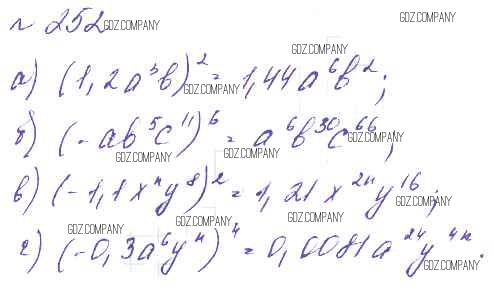 № 252 GDZ.COMPANY GDZ.COMPANY
GDZ.COMPANY
а) (1,2a³b)² = 1,44a⁶b²;
GDZ.COMPANY GDZ.COMPANY
б) (-ab⁵c¹¹)⁶ = a⁶b³⁰c⁶⁶;
GDZ.COMPANY
GDZ.COMPANY GDZ.COMPANY
в) (-1,1xⁿy⁸)² = 1,21x²ⁿy¹⁶;
GDZ.COMPANY
GDZ.COMPANY GDZ.COMPANY
г) (-0,3a⁶yⁿ)⁴ = 0,0081a²⁴y⁴ⁿ.
GDZ.COMPANY GDZ.COMPANY